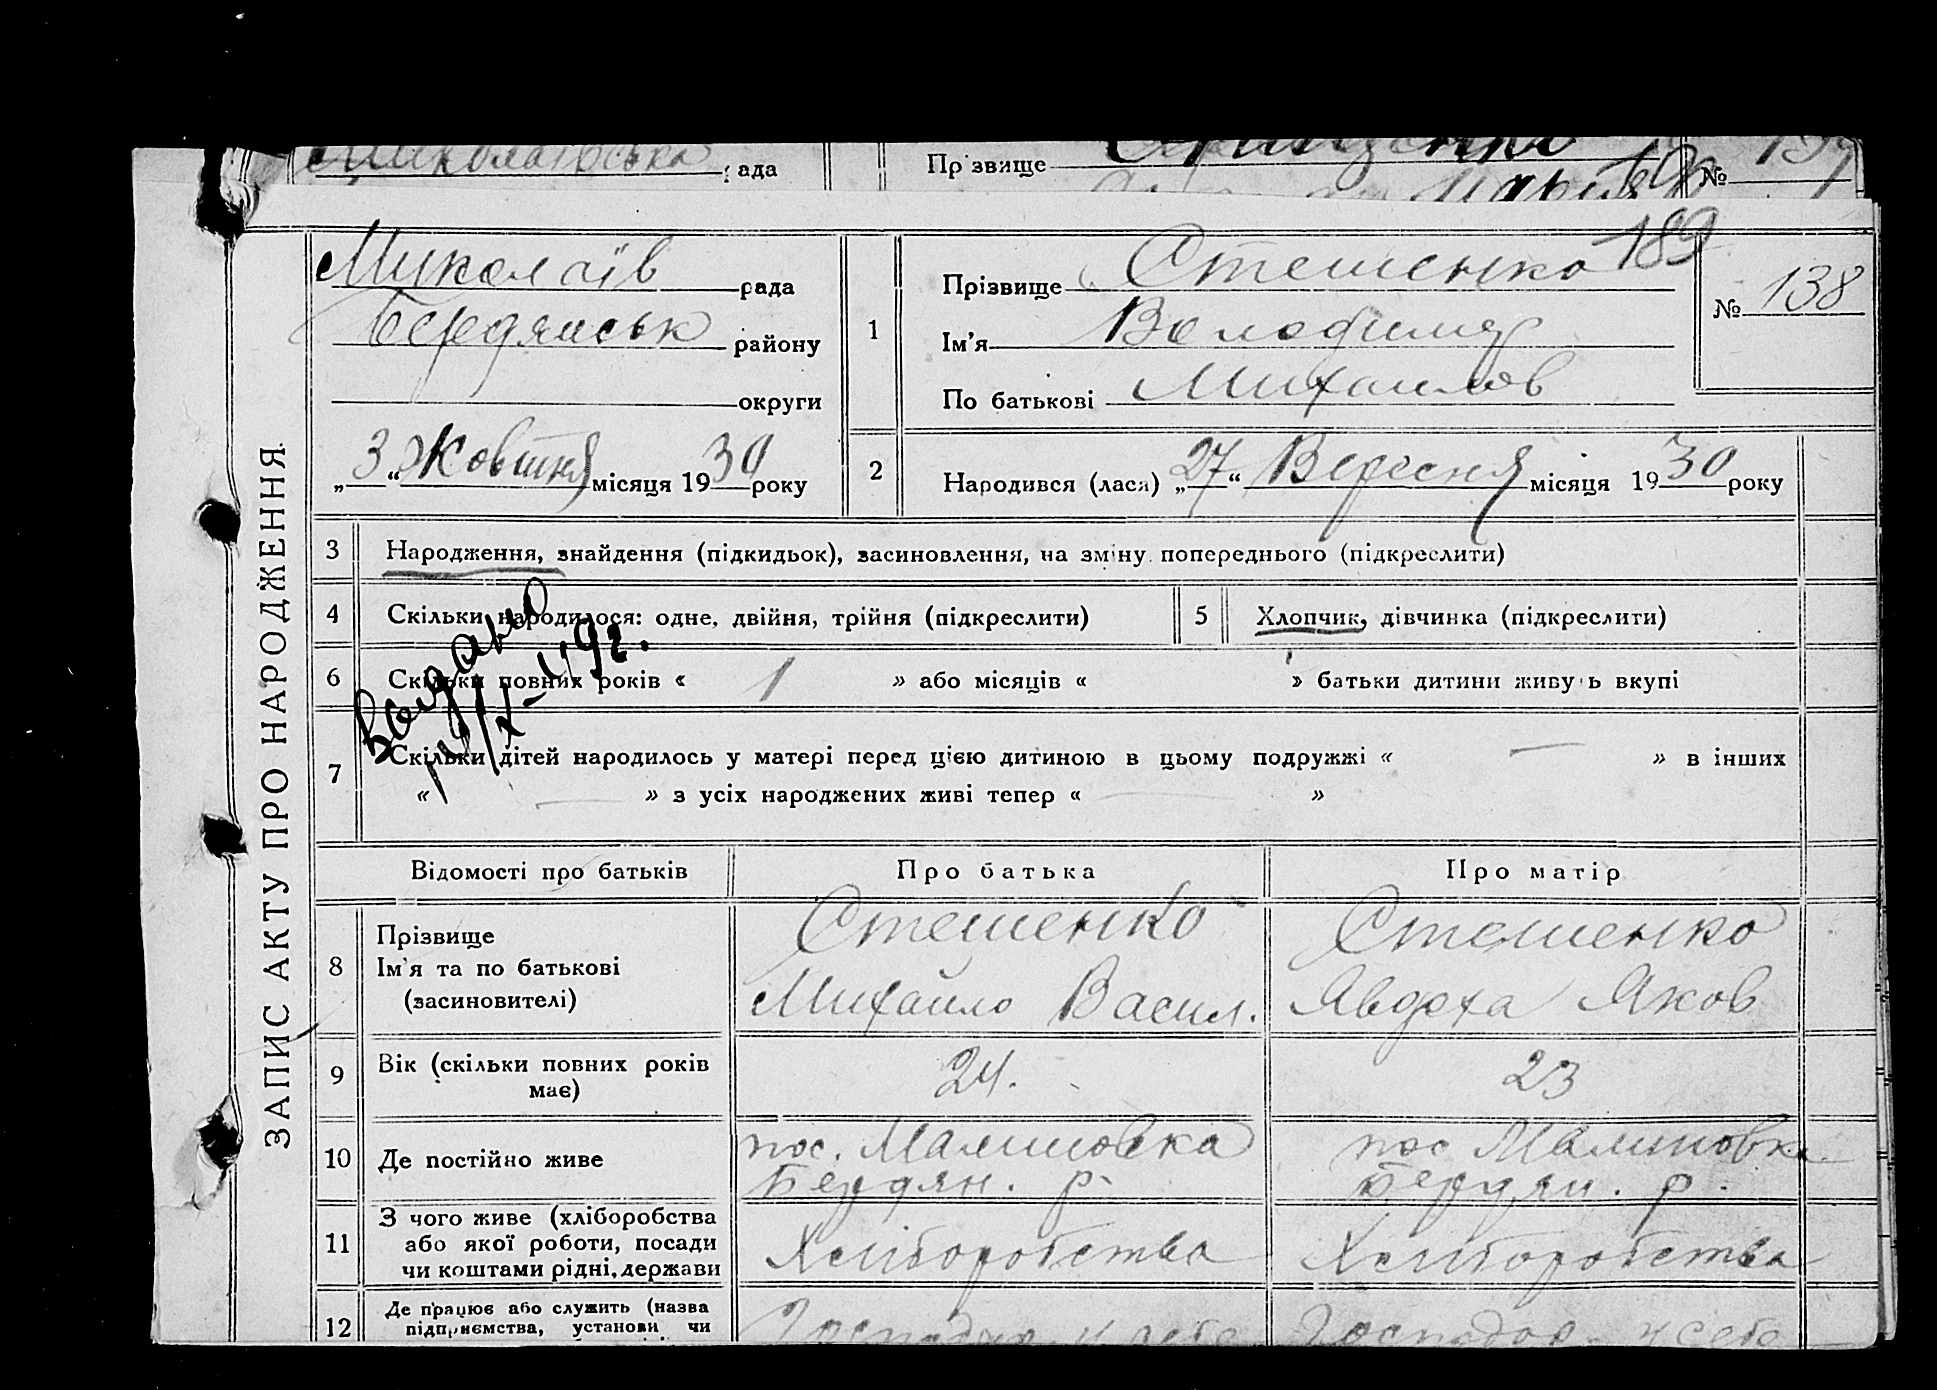 Миколаївська рада
Прізвище
№ 139
ЗАПИС АКТУ ПРО НАРОДЖЕННЯ.
Миколаїв рада
Бердянськ району
округи
„3“ Жовтня місяця 1930 року
1
Прізвище Стешенко
Ім’я Володимир
По батькові Михаилов
189
№ 138
2
Народився (лася) „27“ Вересня місяця 1930 року
3 Народження, знайдення (підкидьок), засиновлення, на зміну попереднього (підкреслити)
4 Скільки народилося: одне, двійня, трійня (підкреслити)
5 Хлопчик, дівчинка (підкреслити)
6 Скільки повних років « 1 » або місяців « » батьки дитини живуть вкупі
7 Скільки дітей народилось у матері перед цією дитиною в цьому подружжі « — » в інших
« — » з усіх народжених живі тепер « — »
Відомості про батьків Про батька Про матір
8 Прізвище
Ім’я та по батькові
(засиновителі)
Стешенко
Михаило Васил.
Стешенко
Явдоха Яков
9 Вік (скільки повних років
має)
24.
23
10 Де постійно живе
пос. Малиновка
Бердян. р.
пос Малиновка
Бердян. р.
11 З чого живе (хліборобства
або якої роботи, посади
чи коштами рідні, держави
Хліборобства
Хліборобства
12 Де працює або служить (назва
підприємства, установи чи